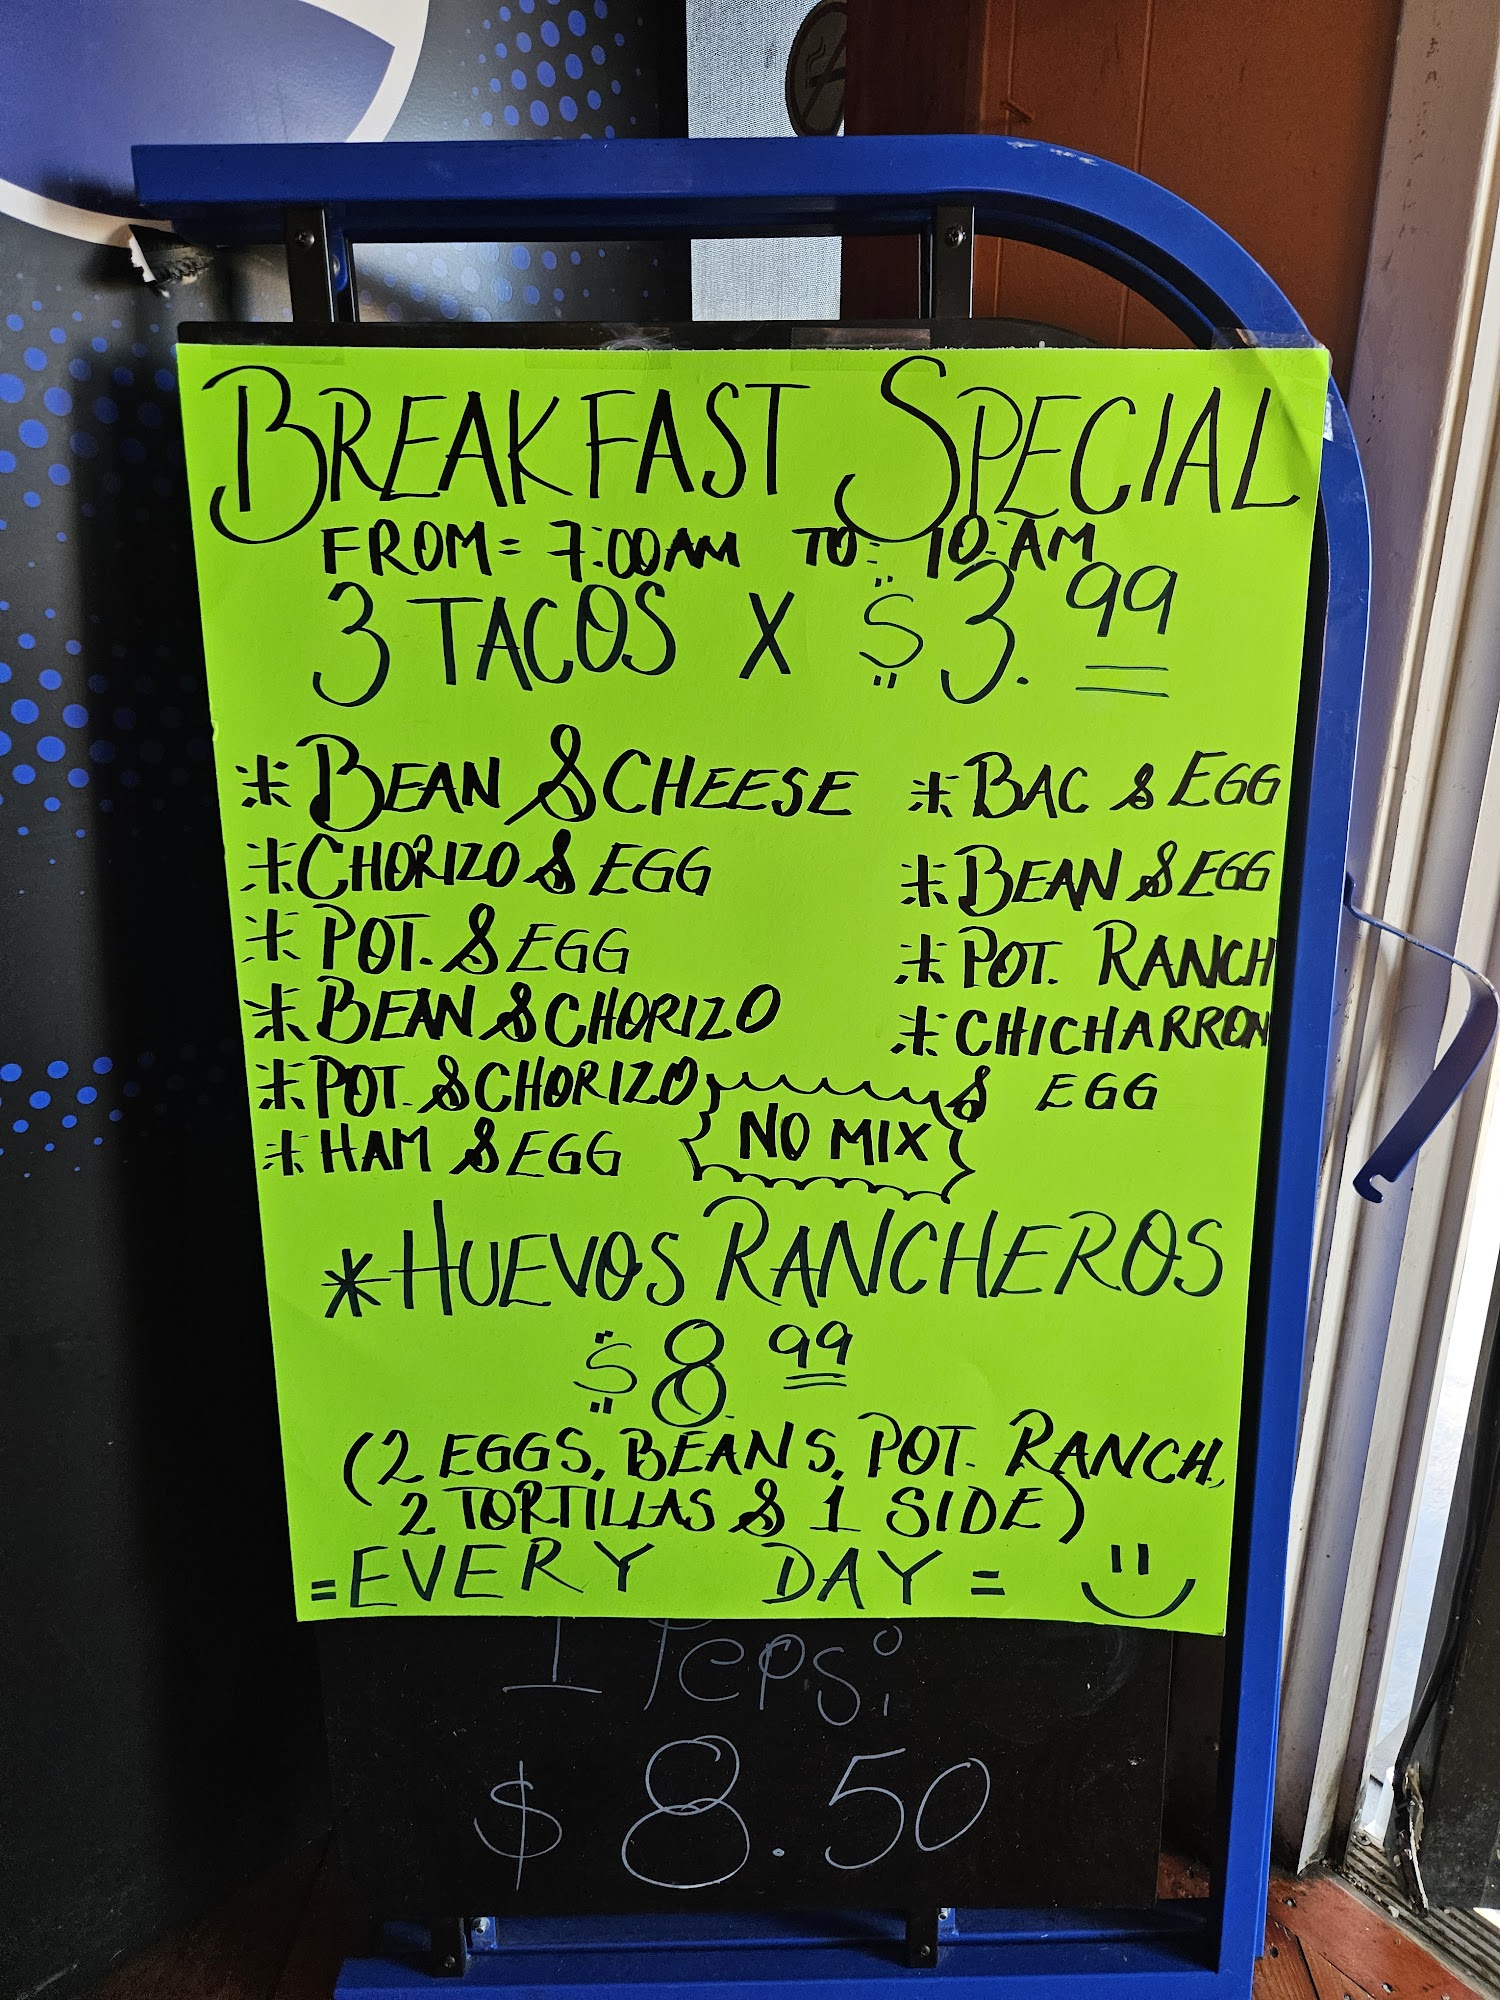 BREAKFAST SPECIAL
FROM= 7:00AM TO: 10:AM
3 TACOS X $3.99
* BEAN & CHEESE
* CHORIZO & EGG
* POT. & EGG
* BEAN & CHORIZO
* POT. & CHORIZO
* HAM & EGG
* BAC & EGG
* BEAN & EGG
* POT. RANCH
* CHICHARRON
& EGG
NO MIX
* HUEVOS RANCHEROS
$8.99
(2 EGGS, BEANS, POT. RANCH,
2 TORTILLAS & 1 SIDE)
=EVERY DAY=
1 Peps:
$8.50